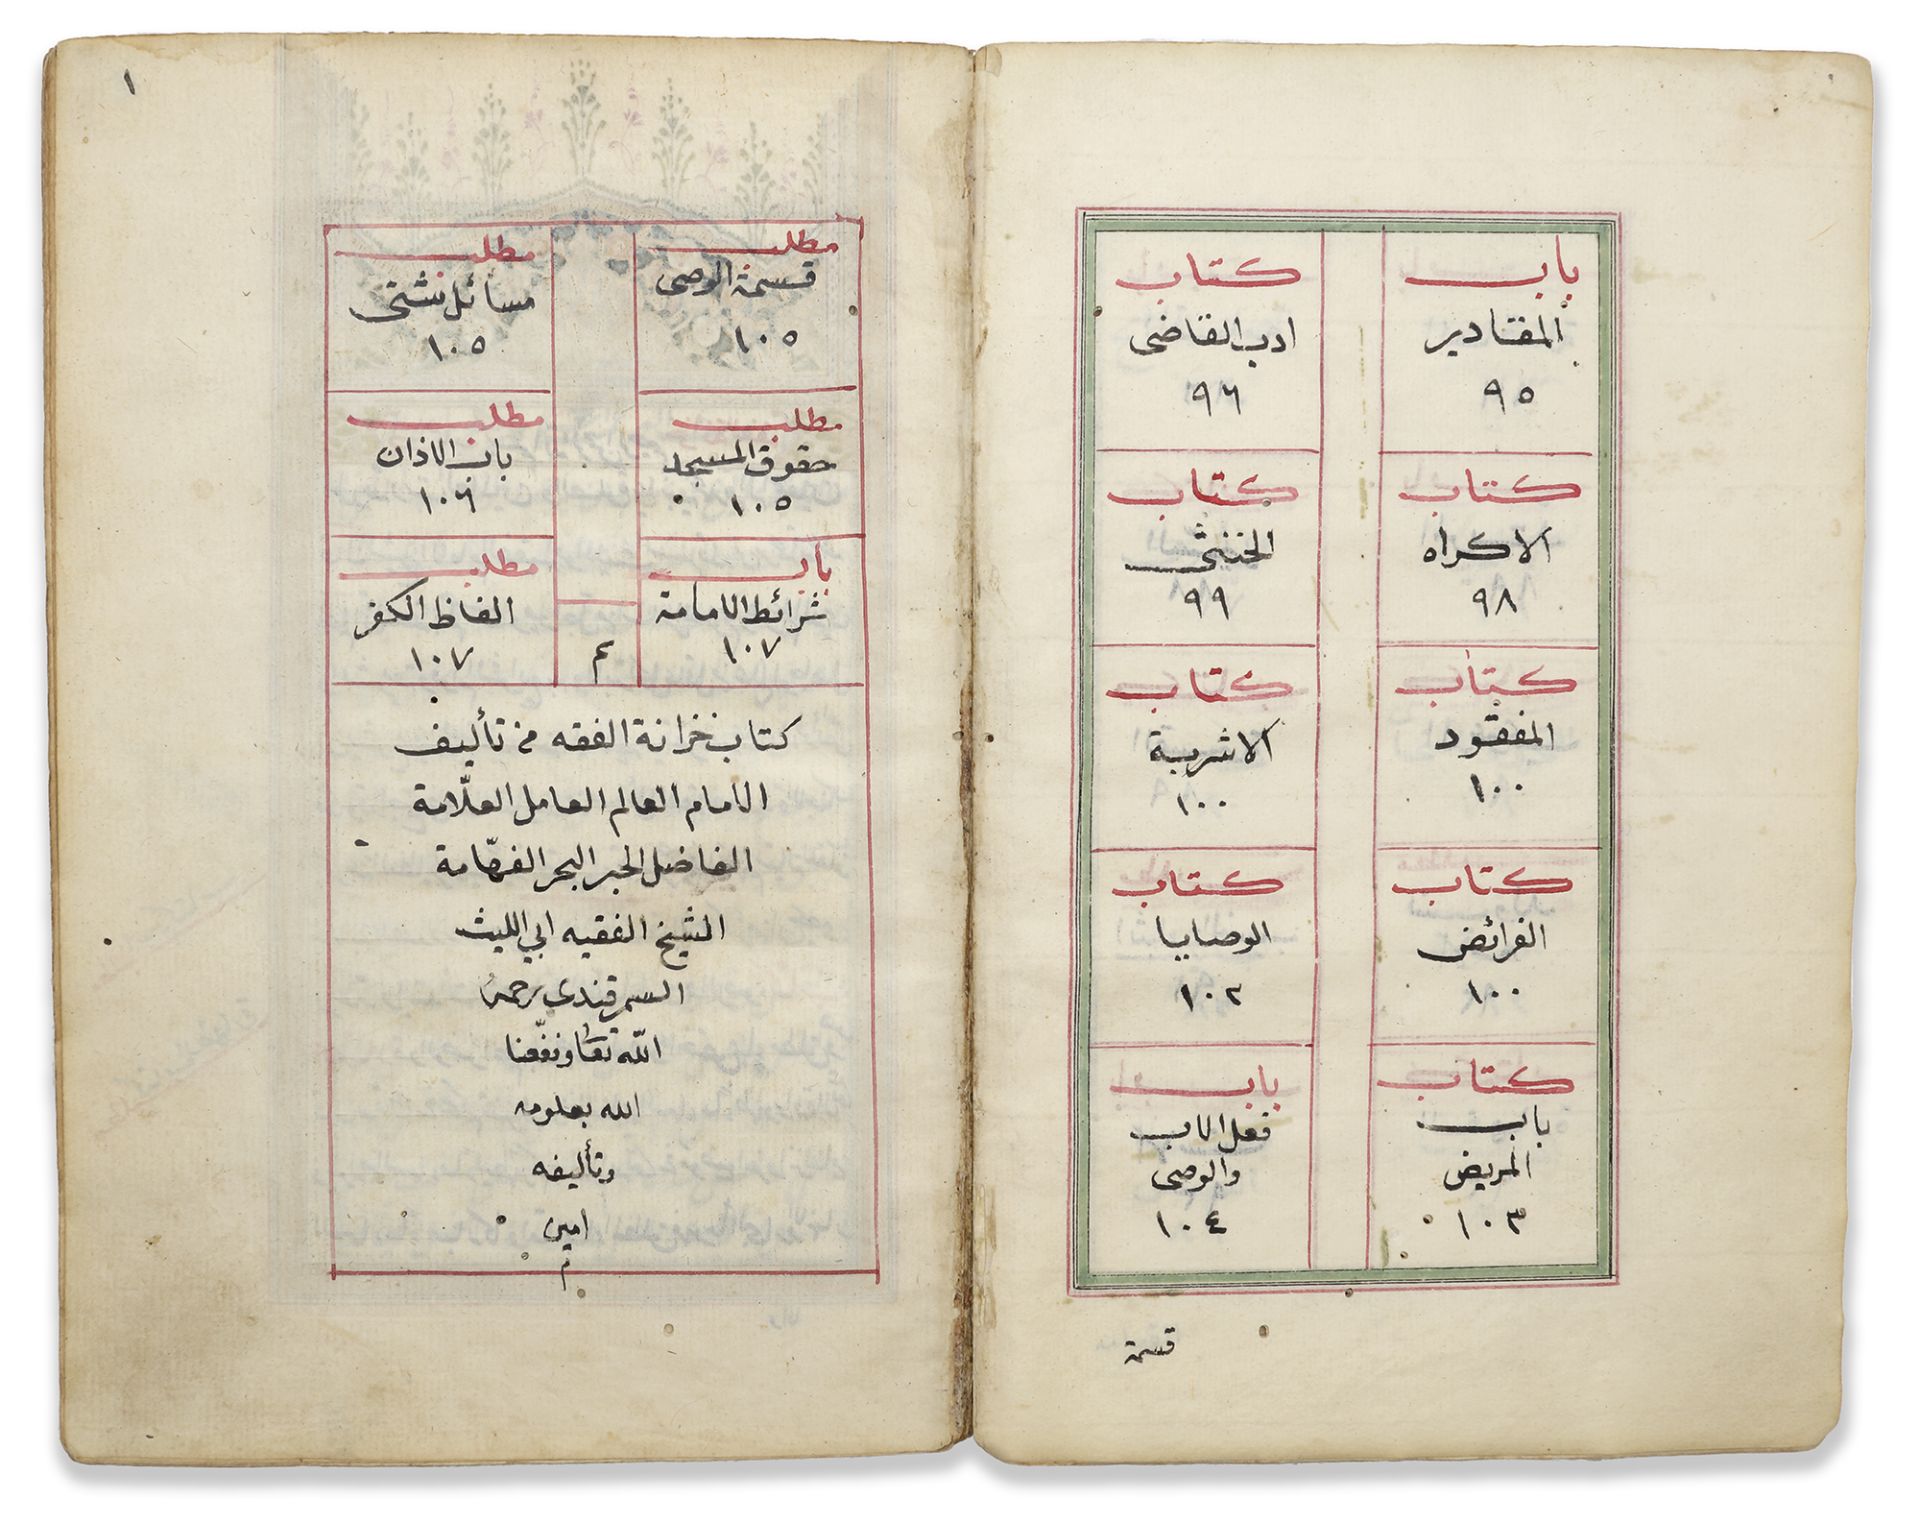 باب
المقادير
٩٥
كتاب
ادب القاضى
٩٦
كتاب
الاكراه
٩٨
كتاب
الخنثى
٩٩
كتاب
المفقود
١٠٠
كتاب
الاشربة
١٠٠
كتاب
الفرائض
١٠٠
كتاب
الوصايا
١٠٢
كتاب
باب
المريض
١٠٣
باب
فعل الاب
والوصى
١٠٤
قسمة
١
مطلب
قسمة الوصى
١٠٥
مطلب
مسائل شتى
١٠٥
مطلب
حقوق المسجد
١٠٥
مطلب
باب الاذان
١٠٦
باب
شرائط الامامة
١٠٧
مطلب
الفاظ الكفر
١٠٧
م
كتاب خزانة الفقه من تأليف
الامام العالم العامل العلّامة
الفاضل الحبر البحر الفهّامة
الشيخ الفقيه ابي الليث
السمرقندى رحمه
الله تعا ونفعنا
الله بعلومه
وتأليفه
امين
م